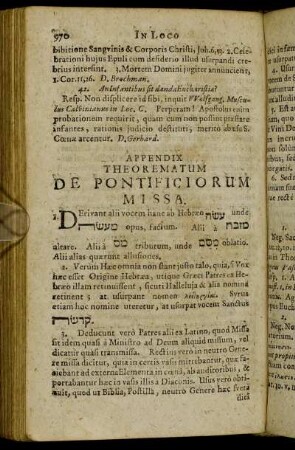 970 IN LOCO
bibitione Sangvinis & Corporis Christi, Joh. 6, 53. 2. Cele-
brationi hujus Epuli cum desiderio illud usurpandi cre-
brius intersint. 3. Mortem Domini jugiter annuncient,
1. Cor. 11, 26. D. Brochman.
42. An Infantibus sit danda Eucharistia?
Resp. Non displicere id sibi, inquit Wolfgang. Muscu-
lus Calvinianus in Loc. C. Perperam! Apostolus enim
probationem requirit, quam cum non possint præstare
infantes, rationis judicio destituti, merito ab usu S.
Cœnæ arcentur. D. Gerhard.
APPENDIX
THEOREMATUM
DE PONTIFICIORUM
MISSA.
1. DErivant alii vocem hanc ab Hebræo עשה unde
מעשה opus, factum. Alii à מזבח
altare. Alii à מס tributum, unde מסת oblatio.
Alii alias quærunt allusiones.
2. Verùm Hæc omnia non stant justo talo, quia, si Vox
hæc esset Origine Hebræa, utique Græci Patres ex He-
bræo illam retinuissent, sicuti Halleluja & alia nomina
retinent; at usurpant nomen Syrus
etiam hoc nomine uteretur, at usurpat vocem Sanctus
3. Deducunt verò Patres alii ex Latino, quod Missa
sit idem quasi à Ministro ad Deum aliquid missum, vel
dicatur quasi transmissa. Rectius verò in neutro Gene-
re missa dicitur, quia in certis vasis mittebantur, quæ fa-
ciebant ad externa Elementa in cœnâ, ab auditoribus, &
portabantur hæc in vasis illis à Diaconis. Usus verò obti-
nuit, quod ut Biblia, Postilla, neutro Genere hæc fretà
dici